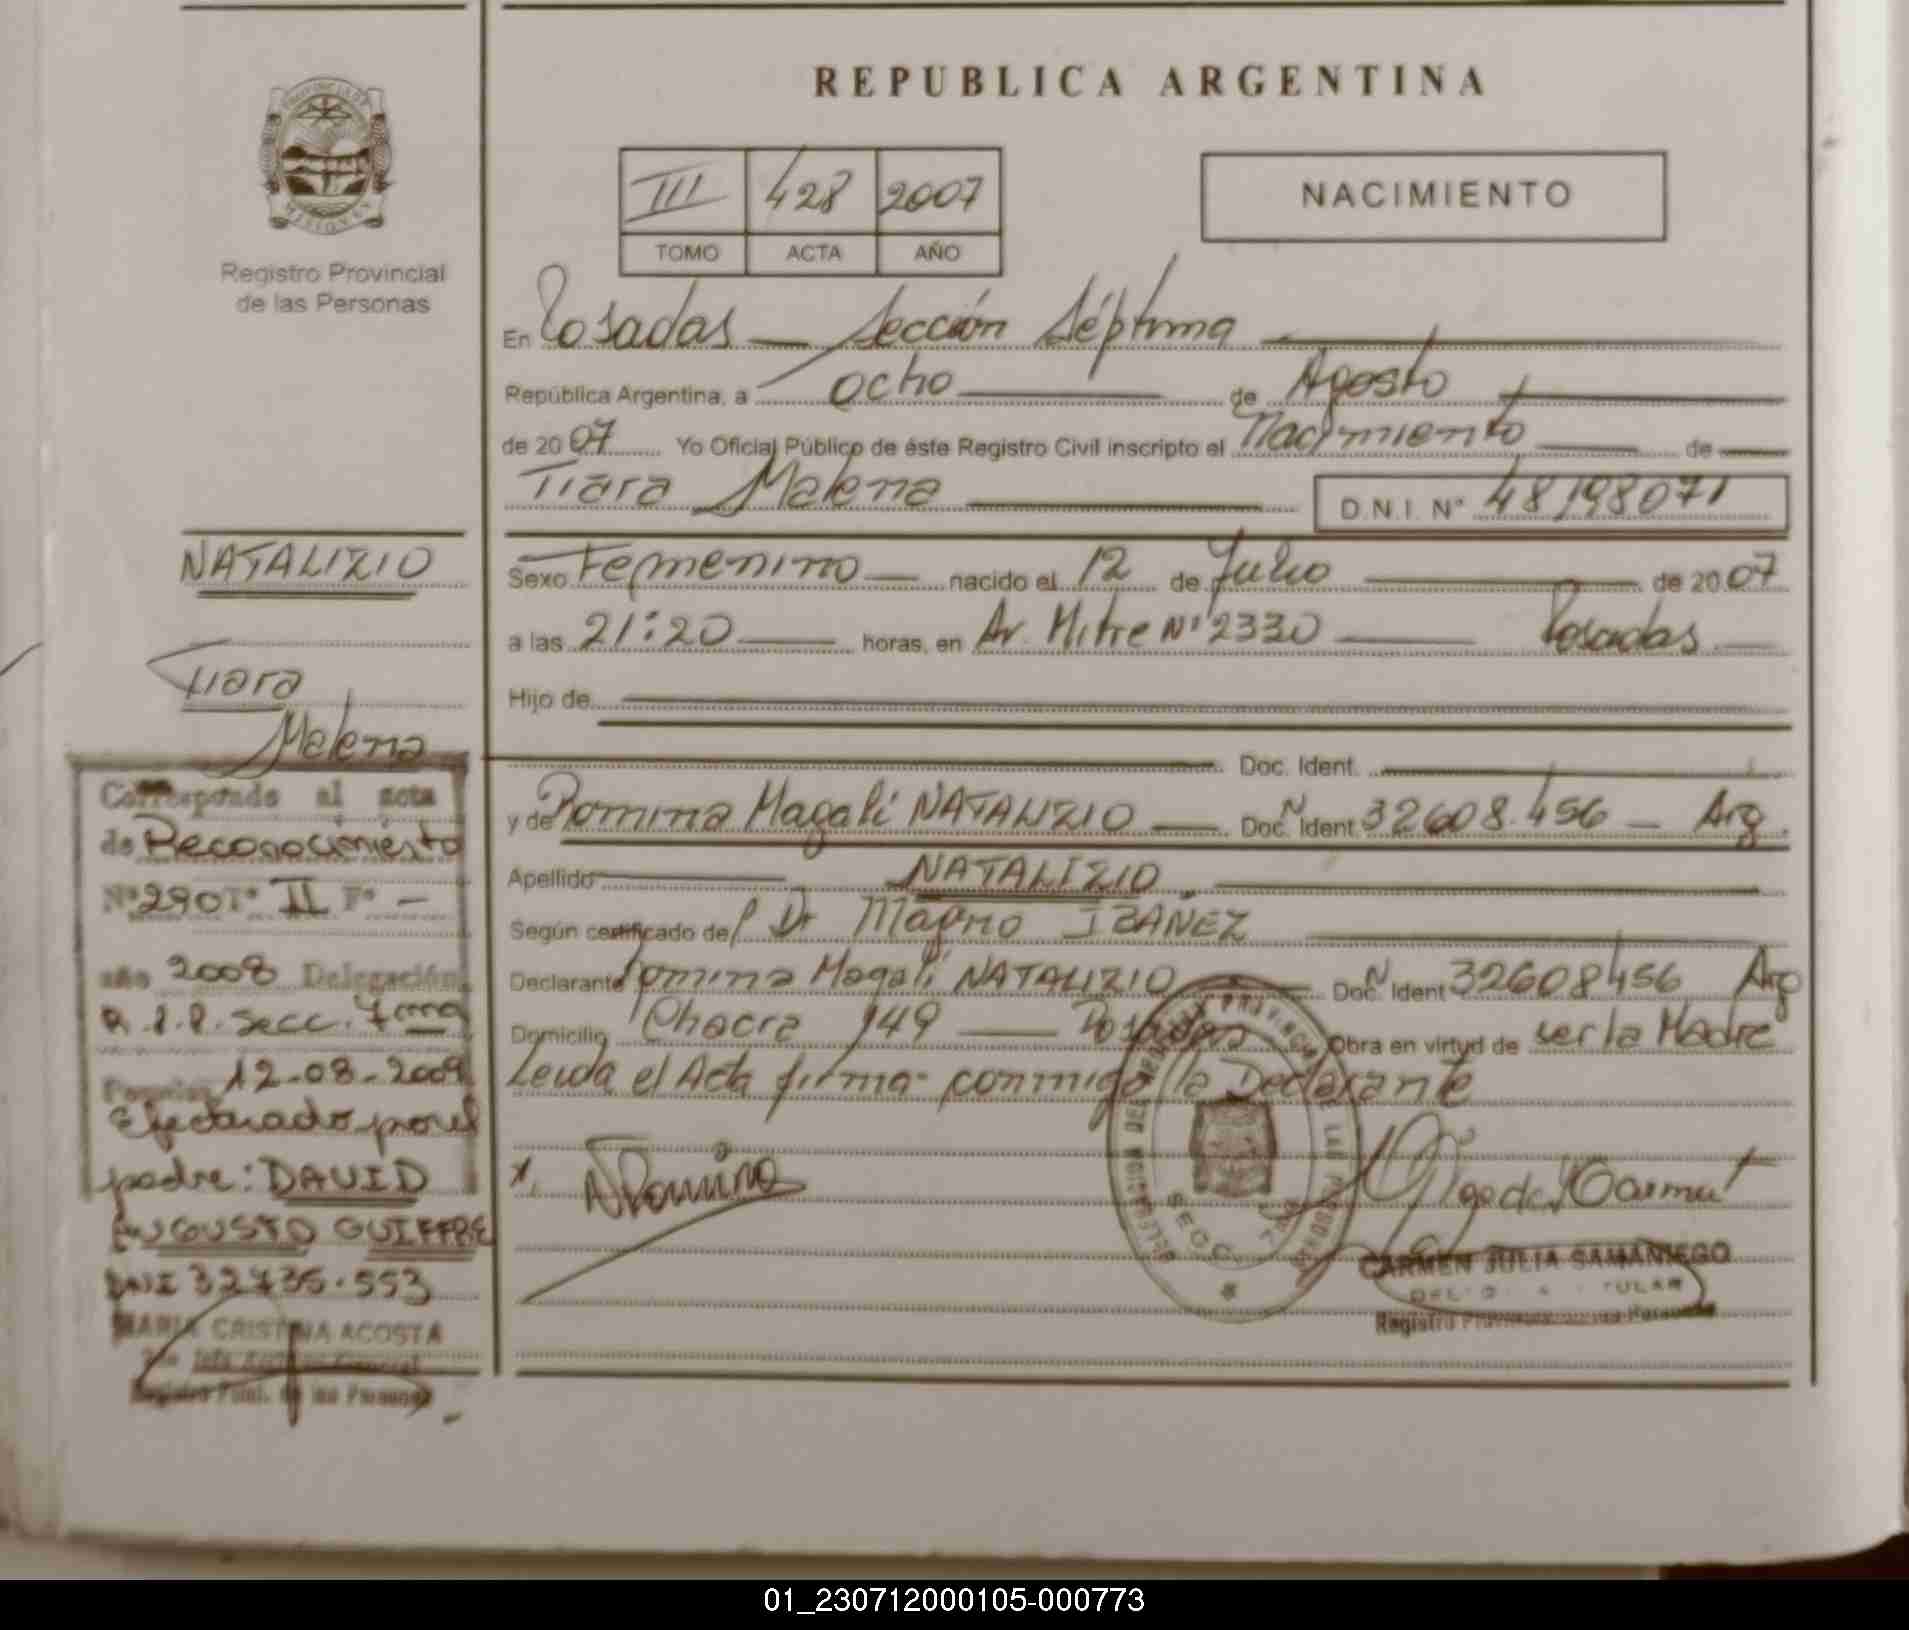 REPUBLICA ARGENTINA
MISIONES
Registro Provincial
de las Personas
III 428 2007
TOMO ACTA AÑO
NACIMIENTO
En Posadas — Sección Séptima
República Argentina, a ocho de Agosto
de 2007 Yo Oficial Público de éste Registro Civil inscripto el Nacimiento de
Tiara Malena D.N.I. N° 48198071
Sexo Femenino nacido el 12 de Julio de 2007
a las 21:20 horas, en Av. Mitre N° 2330 Posadas
Hijo de
Doc. Ident.
y de Romina Magalí NATALIZIO — Doc. N Ident 32608.456 — Arg.
Apellido NATALIZIO
Según certificado de Dr Magno IBAÑEZ
Declarante Romina Magalí NATALIZIO Doc. N Ident 32608456 Arg
Domicilio Chacra 149 — Posadas Obra en virtud de ser la Madre
Leida el Acta firma conmigo la Declarante
x. NRomina
SECC. 7ma
CARMEN JULIA SAMANIEGO
Registro
NATALIZIO
Tiara
Malena
Corresponde al acta
de Reconocimiento
N° 290 T° II F° —
año 2008 Delegación
R.P.P. Secc. 7ma
12-08-2009
Efectuado por el
padre: DAVID
AUGUSTO GUIFFRE
DNI 32735.553
MARIA CRISTINA ACOSTA
Registro de las Personas
01_230712000105-000773